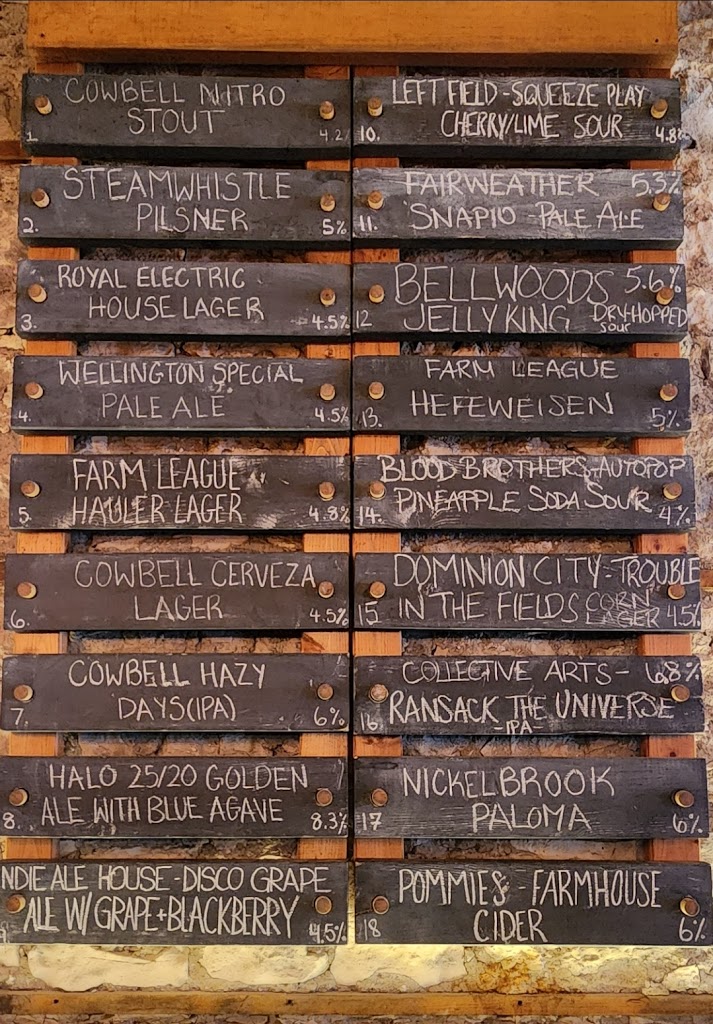 COWBELL NITRO
STOUT
1. 4.2
STEAMWHISTLE
PILSNER
2. 5%
ROYAL ELECTRIC
HOUSE LAGER
3. 4.5%
WELLINGTON SPECIAL
PALE ALE
4. 4.5%
FARM LEAGUE
HAULER LAGER
5. 4.8%
COWBELL CERVEZA
LAGER
6. 4.5%
COWBELL HAZY
DAYS(IPA)
7. 6%
HALO 25/20 GOLDEN
ALE WITH BLUE AGAVE
8. 8.3%
NDIE ALE HOUSE-DISCO GRAPE
ALE W/ GRAPE+BLACKBERRY
4.5%
LEFT FIELD-SQUEEZE PLAY
CHERRY/LIME SOUR
10. 4.8%
FAIRWEATHER 5.3%
SNAPIO-PALE ALE
11.
BELLWOODS 5.6%
JELLY KING DRY-HOPPED
SOUR
12
FARM LEAGUE
HEFEWEISEN
13. 5%
BLOOD BROTHERS-AUTOPOP
PINEAPPLE SODA SOUR
14. 4%
DOMINION CITY-TROUBLE
IN THE FIELDS CORN
LAGER
15 4.5%
COLLECTIVE ARTS- 6.8%
RANSACK THE UNIVERSE
-IPA-
16.
NICKELBROOK
PALOMA
17 6%
POMMIES-FARMHOUSE
CIDER
18 6%